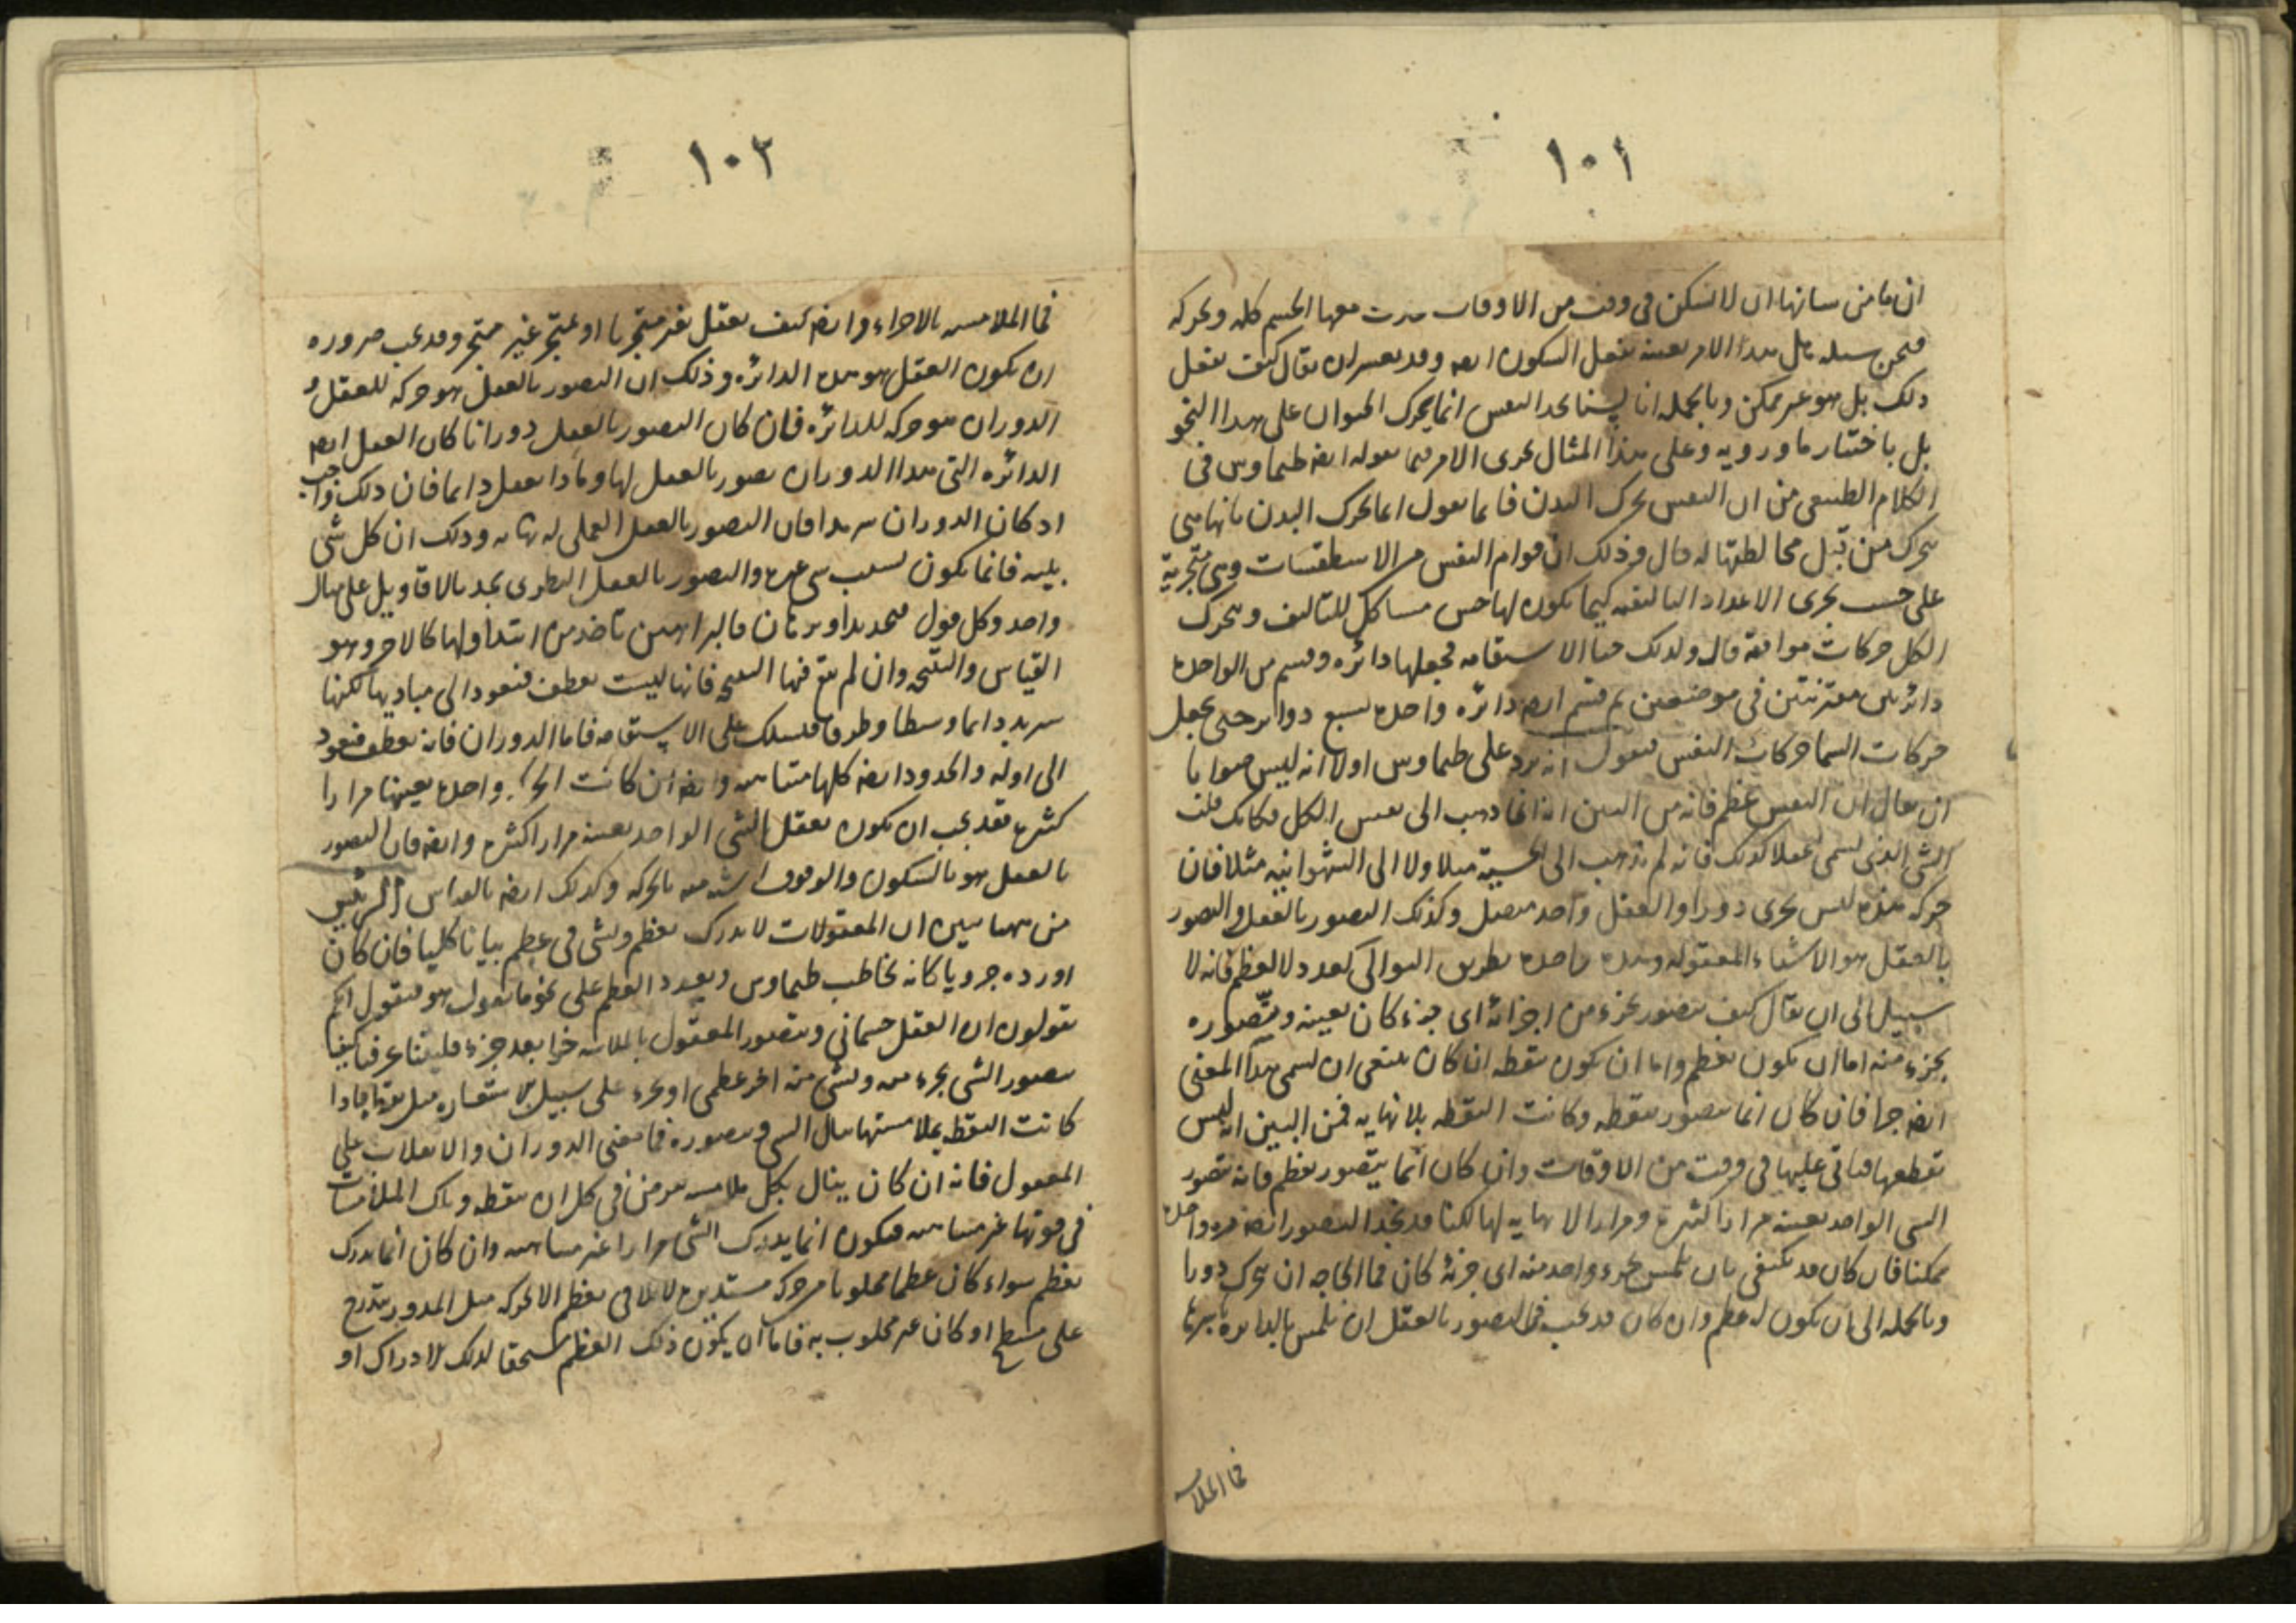 ١٠١
ان ما من شانها ان لا تسكن فى وقت من الاوقات معها الجسم كله وتحركه
فمن سبيله مثل هذا الامر بعينه يفعل السكون ايضه وقد يعسر ان يقال كيف يفعل
ذلك بل هو غير ممكن وبالجمله انا لسنا نجد النفس انما تحرك الحيوان على هذا النحو
بل باختيار ما ورويه وعلى هذا المثال يجرى الامر فيما يقوله ايضه طيماوس فى
الكلام الطبيعى من ان النفس تحرك البدن فانما يقول انما تحرك البدن بانها هى
تتحرك من قبل مخالطتها له قال وذلك ان قوام النفس من الاسطقسات وهى متجزية
على حسب مجرى الاعداد التاليفيه كيما يكون لها حس مشاكل للتاليف وتتحرك
الكل حركات موافقه قال ولذلك حنا الاستقامه فجعلها دائره وقسم من الواحده
دائرتين مقترنتين فى موضعين ثم قسم ايضه دائره واحده لسبع دوائر حتى يجعل
حركات السما حركات النفس فنقول انه نرد على طيماوس اولا انه ليس صوابا
ان يقال ان النفس عظم فانه من البين انه انما ذهب الى نفس الكل فكانك قلت
الشى الذى يسمى عقلا كذلك فانه لم يذهب الى الحسية مثلا ولا الى الشهوانيه مثلا فان
حركه هذه ليس يجرى دورا والعقل واحد متصل وكذلك التصور بالعقل والتصور
بالعقل هو الاشياء المعقوله وهذه واحده بطريق التوالى كعدد لا لعظم فانه لا
سبيل الى ان يقال كيف يتصور بجزء من اجزائه اى جزء كان بعينه ويتصوره
بجزء منه اما ان يكون بعظم واما ان يكون بنقطه ان كان ينبغى ان يسمى هذا المعنى
ايضه جزا فان كان انما يتصور بنقطه وكانت النقطه بلا نهايه فمن البين انه ليس
يقطعها فياتى عليها فى وقت من الاوقات وان كان انما يتصور بعظم فانه يتصور
الشى الواحد بعينه مرارا كثيره ومرارا لا نهايه لها لكنا قد نجد التصور ايضه مره واحده
ممكنا فان كان قد يكتفى بان يلمس بجزء واحد منه اى جزء كان فما الحاجه ان يتحرك دورا
وبالجمله الى ان يكون له عظم وان كان قد يجب فى التصور بالعقل ان يلمس بالدائره باسرها
فما الملامسه
١٠٢
فما الملامسه بالاجزاء وايضه كيف يعقل بغير متجز ما او بمتجز غير متجز وقد يجب ضروره
ان يكون العقل هو هذه الدائره وذلك ان التصور بالعقل هو حركه للعقل و
الدوران هو حركه للدائره فان كان التصور بالعقل دورانا كان العقل ايضه
الدائره التى هذا الدوران تصور بالعقل لها وماذا يعقل دايما فان ذلك واجب
اذ كان الدوران سرمدا فان التصور بالعقل العملى له نهايه وذلك ان كل شى
يليه فانما يكون لسبب شى غيره والتصور بالعقل النظرى يحد بالاقاويل على مثال
واحد وكل قول تحديد او برهان فالبراهين تاخذ من ابتدا ولها كالاخر وهو
القياس والنتيجه وان لم تقع فيها النتيجه فانها ليست تعطف فتعود الى مباديها لكنها
تزيد دايما وسطا وطرفا فتسلك على الاستقامه فاما الدوران فانه يعطف فيعود
الى اوله والحدود ايضه كلها متناهيه وايضه ان كانت واحده بعينها مرارا
كثيره فقد يجب ان يكون يعقل الشى الواحد بعينه مرارا كثيره وايضه فان التصور
بالعقل هو بالسكون والوقوف اشبه منه بالحركه وكذلك ايضه بالقياس الرئيس
من ههنا يبين ان المعقولات لا تدرك بعظم وبشى فى عظم بيانا كليا فان كان
اورده جزويا كانه يخاطب طيماوس ويعدد العظم على نحو ما يقول هو فيقول انكم
تقولون ان العقل جسمانى ويتصور المعقول بالملامسه جزا بعد جزء فليتنا عرفنا كيف
يتصور الشى بجزء منه وبشى منه اخر عظمى او بجزء على سبيل الاستعاره مثل نقطه فاذا
كانت النقطه بملامستها ينال الشى ويتصوره فما معنى الدوران والانقلاب على
المعقول فانه ان كان ينال بكل ملامسه تعرض فى كل ان بنقطه وتلك الملامسات
فى قوتها غير متناهيه فيكون انما يدرك الشى مرارا غير متناهيه وان كان انما يدرك
بعظم سواء كان عظما محلوبا من حركه مستديره لا يلاقى بعظم الا بحركه مثل المدور يتدرج
على مسطح او كان غير محلوب به فاما ان يكون ذلك العظم مستحقا لذلك الادراك او